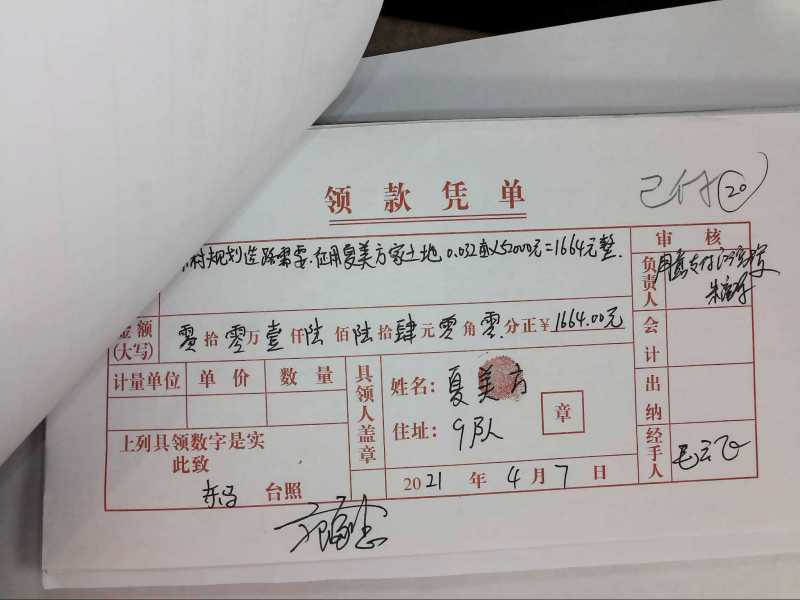 领款凭单
已付 20
村规划造路需要.征用夏美方家土地0.032亩×52000元=1664元整.
审核
负责人
金额(大写) 零拾零万壹仟陆佰陆拾肆元零角零分正¥1664.00元
会计
计量单位 单价 数量
具领人盖章
姓名:夏美方
住址:9队
章
出纳
上列具领数字是实
此致
台照
2021年4月7日
经手人